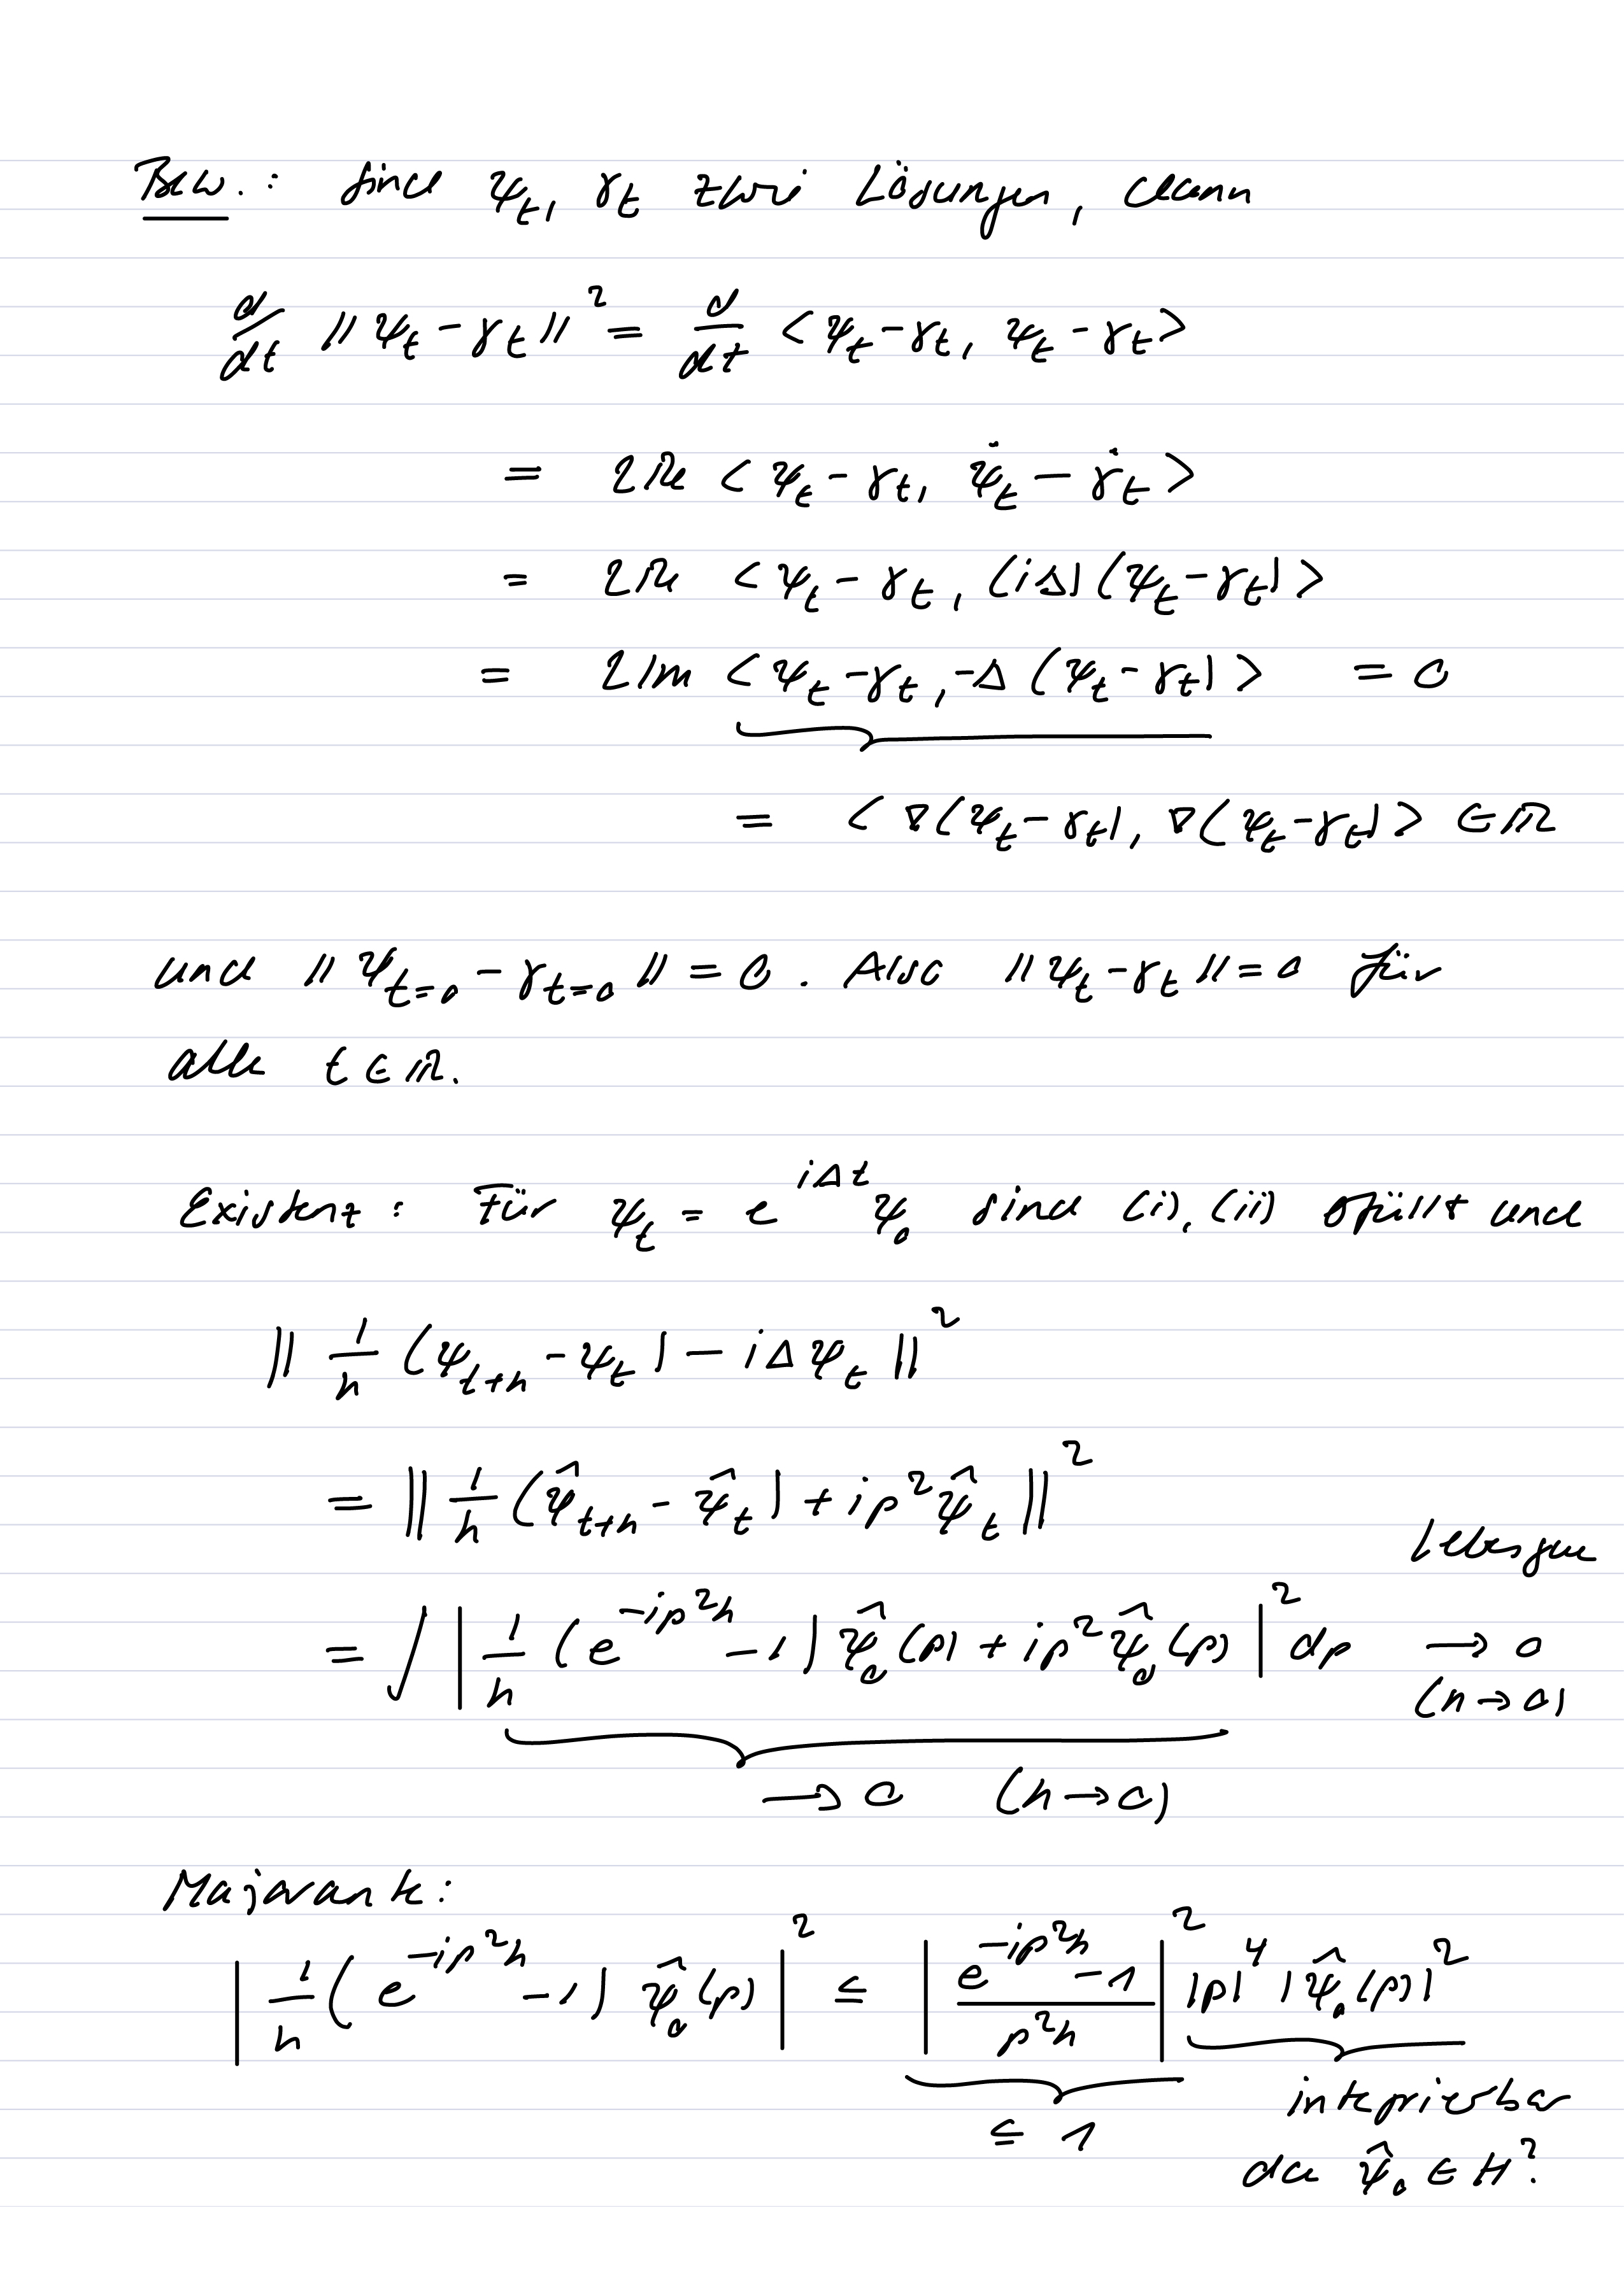 Bew.: Sind ψ_t, γ_t zwei Lösungen, dann
d/dt ‖ψ_t − γ_t‖² = d/dt <ψ_t − γ_t, ψ_t − γ_t>
= 2Re <ψ_t − γ_t, ψ̇_t − γ̇_t>
= 2Re <ψ_t − γ_t, (iΔ)(ψ_t − γ_t)>
= 2Im <ψ_t − γ_t, −Δ(ψ_t − γ_t)> = 0
= <∇(ψ_t − γ_t), ∇(ψ_t − γ_t)> ∈ ℝ
und ‖ψ_{t=0} − γ_{t=0}‖ = 0. Also ‖ψ_t − γ_t‖ = 0 für
alle t ∈ ℝ.
Existenz: Für ψ_t = e^{iΔt} ψ_0 sind (i), (ii) erfüllt und
‖ 1/h (ψ_{t+h} − ψ_t) − iΔψ_t ‖²
= ‖ 1/h (ψ̂_{t+h} − ψ̂_t) + ip² ψ̂_t ‖²
Lebesgue
= ∫ | 1/h (e^{−ip²h} − 1) ψ̂_0(p) + ip² ψ̂_0(p) |² dp → 0
(h→0)
→ 0 (h→0)
Majorante:
| 1/h (e^{−ip²h} − 1) ψ̂_0(p) |² ≤ | (e^{−ip²h} − 1)/(p²h) |² |p|⁴ |ψ̂_0(p)|²
≤ 1
integrierbar
da ψ̂_0 ∈ H².